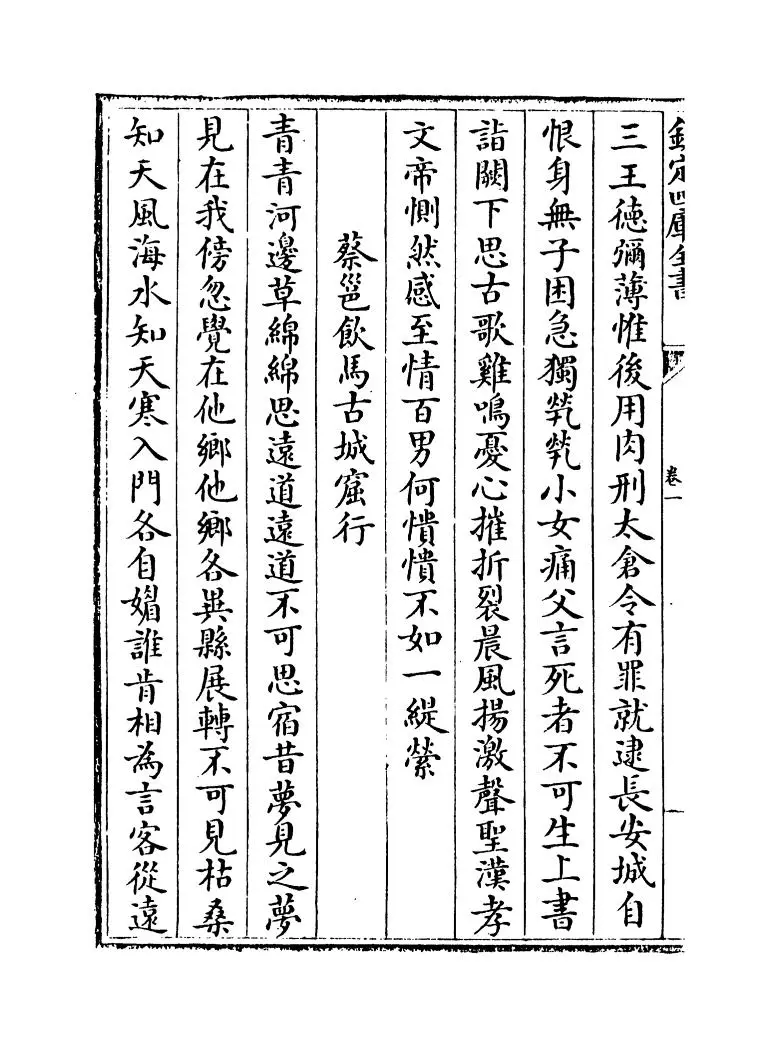 欽定四庫全書
卷一
三王徳彌薄惟後用肉刑太倉令有罪就逮長安城自
恨身無子困急獨煢煢小女痛父言死者不可生上書
詣闕下思古歌雞鳴憂心摧折裂晨風揚激聲聖漢孝
文帝惻然感至情百男何憒憒不如一緹縈
蔡邕飲馬古城窟行
青青河邊草綿綿思遠道遠道不可思宿昔夢見之夢
見在我傍忽覺在他鄉他鄉各異縣展轉不可見枯桑
知天風海水知天寒入門各自媚誰肯相為言客從遠